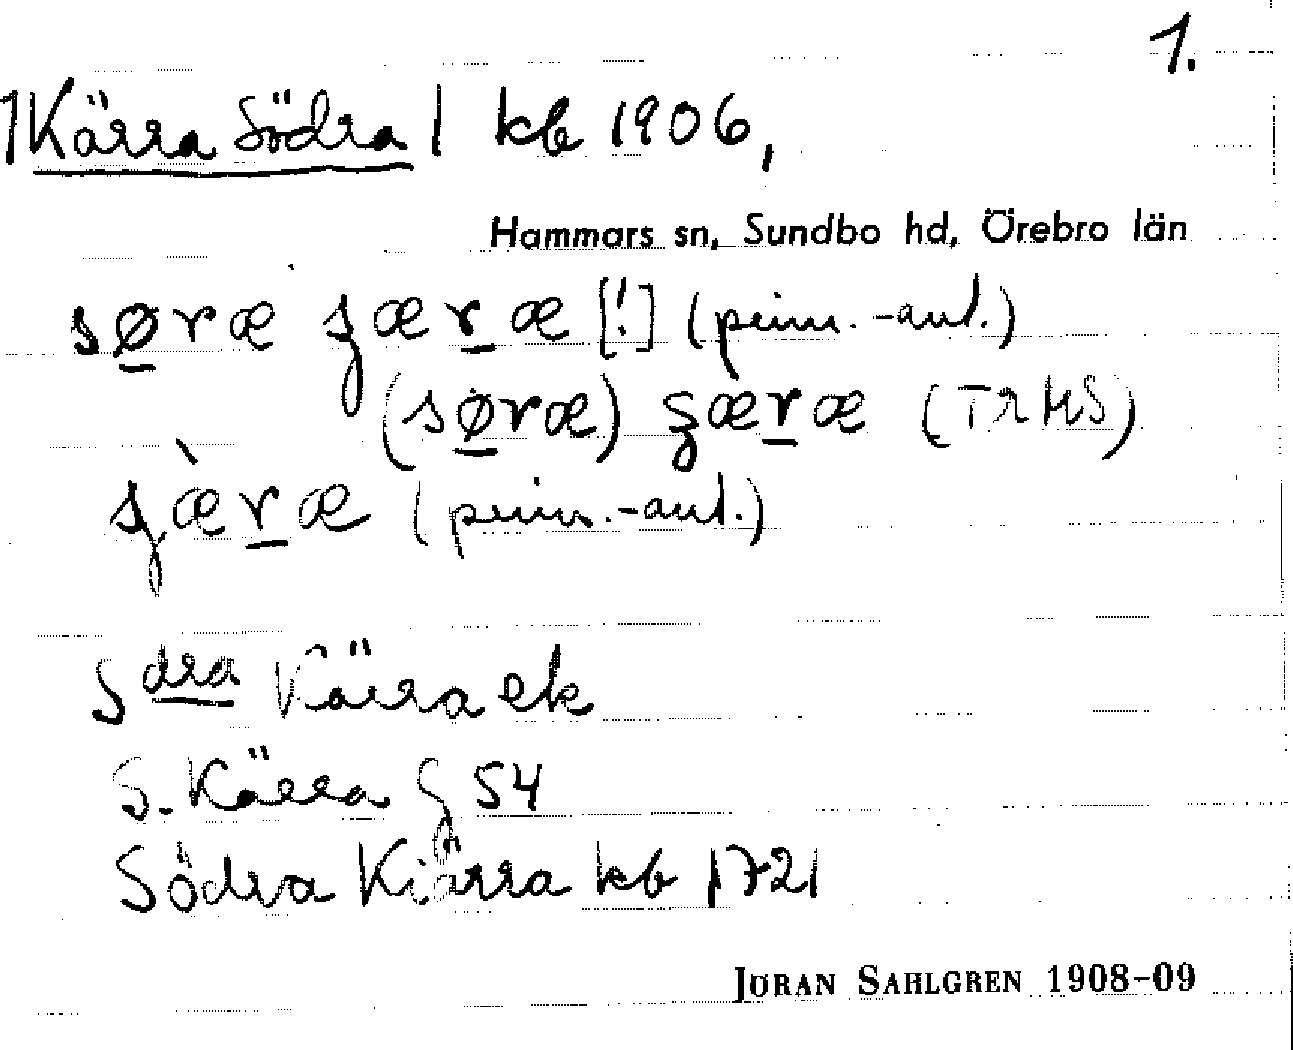 1.
1 Kärra Södra | kb 1906,
Hammars sn, Sundbo hd, Örebro län
søræ ʂæræ [!] (prim.-ant.)
(søræ) ʂæræ (TRHS)
ʂæ̀ræ (prim.-ant.)
Sdra Kärra ek
S. Kärra G 54
Södra Kiärra kb 1721
JÖRAN SAHLGREN 1908–09